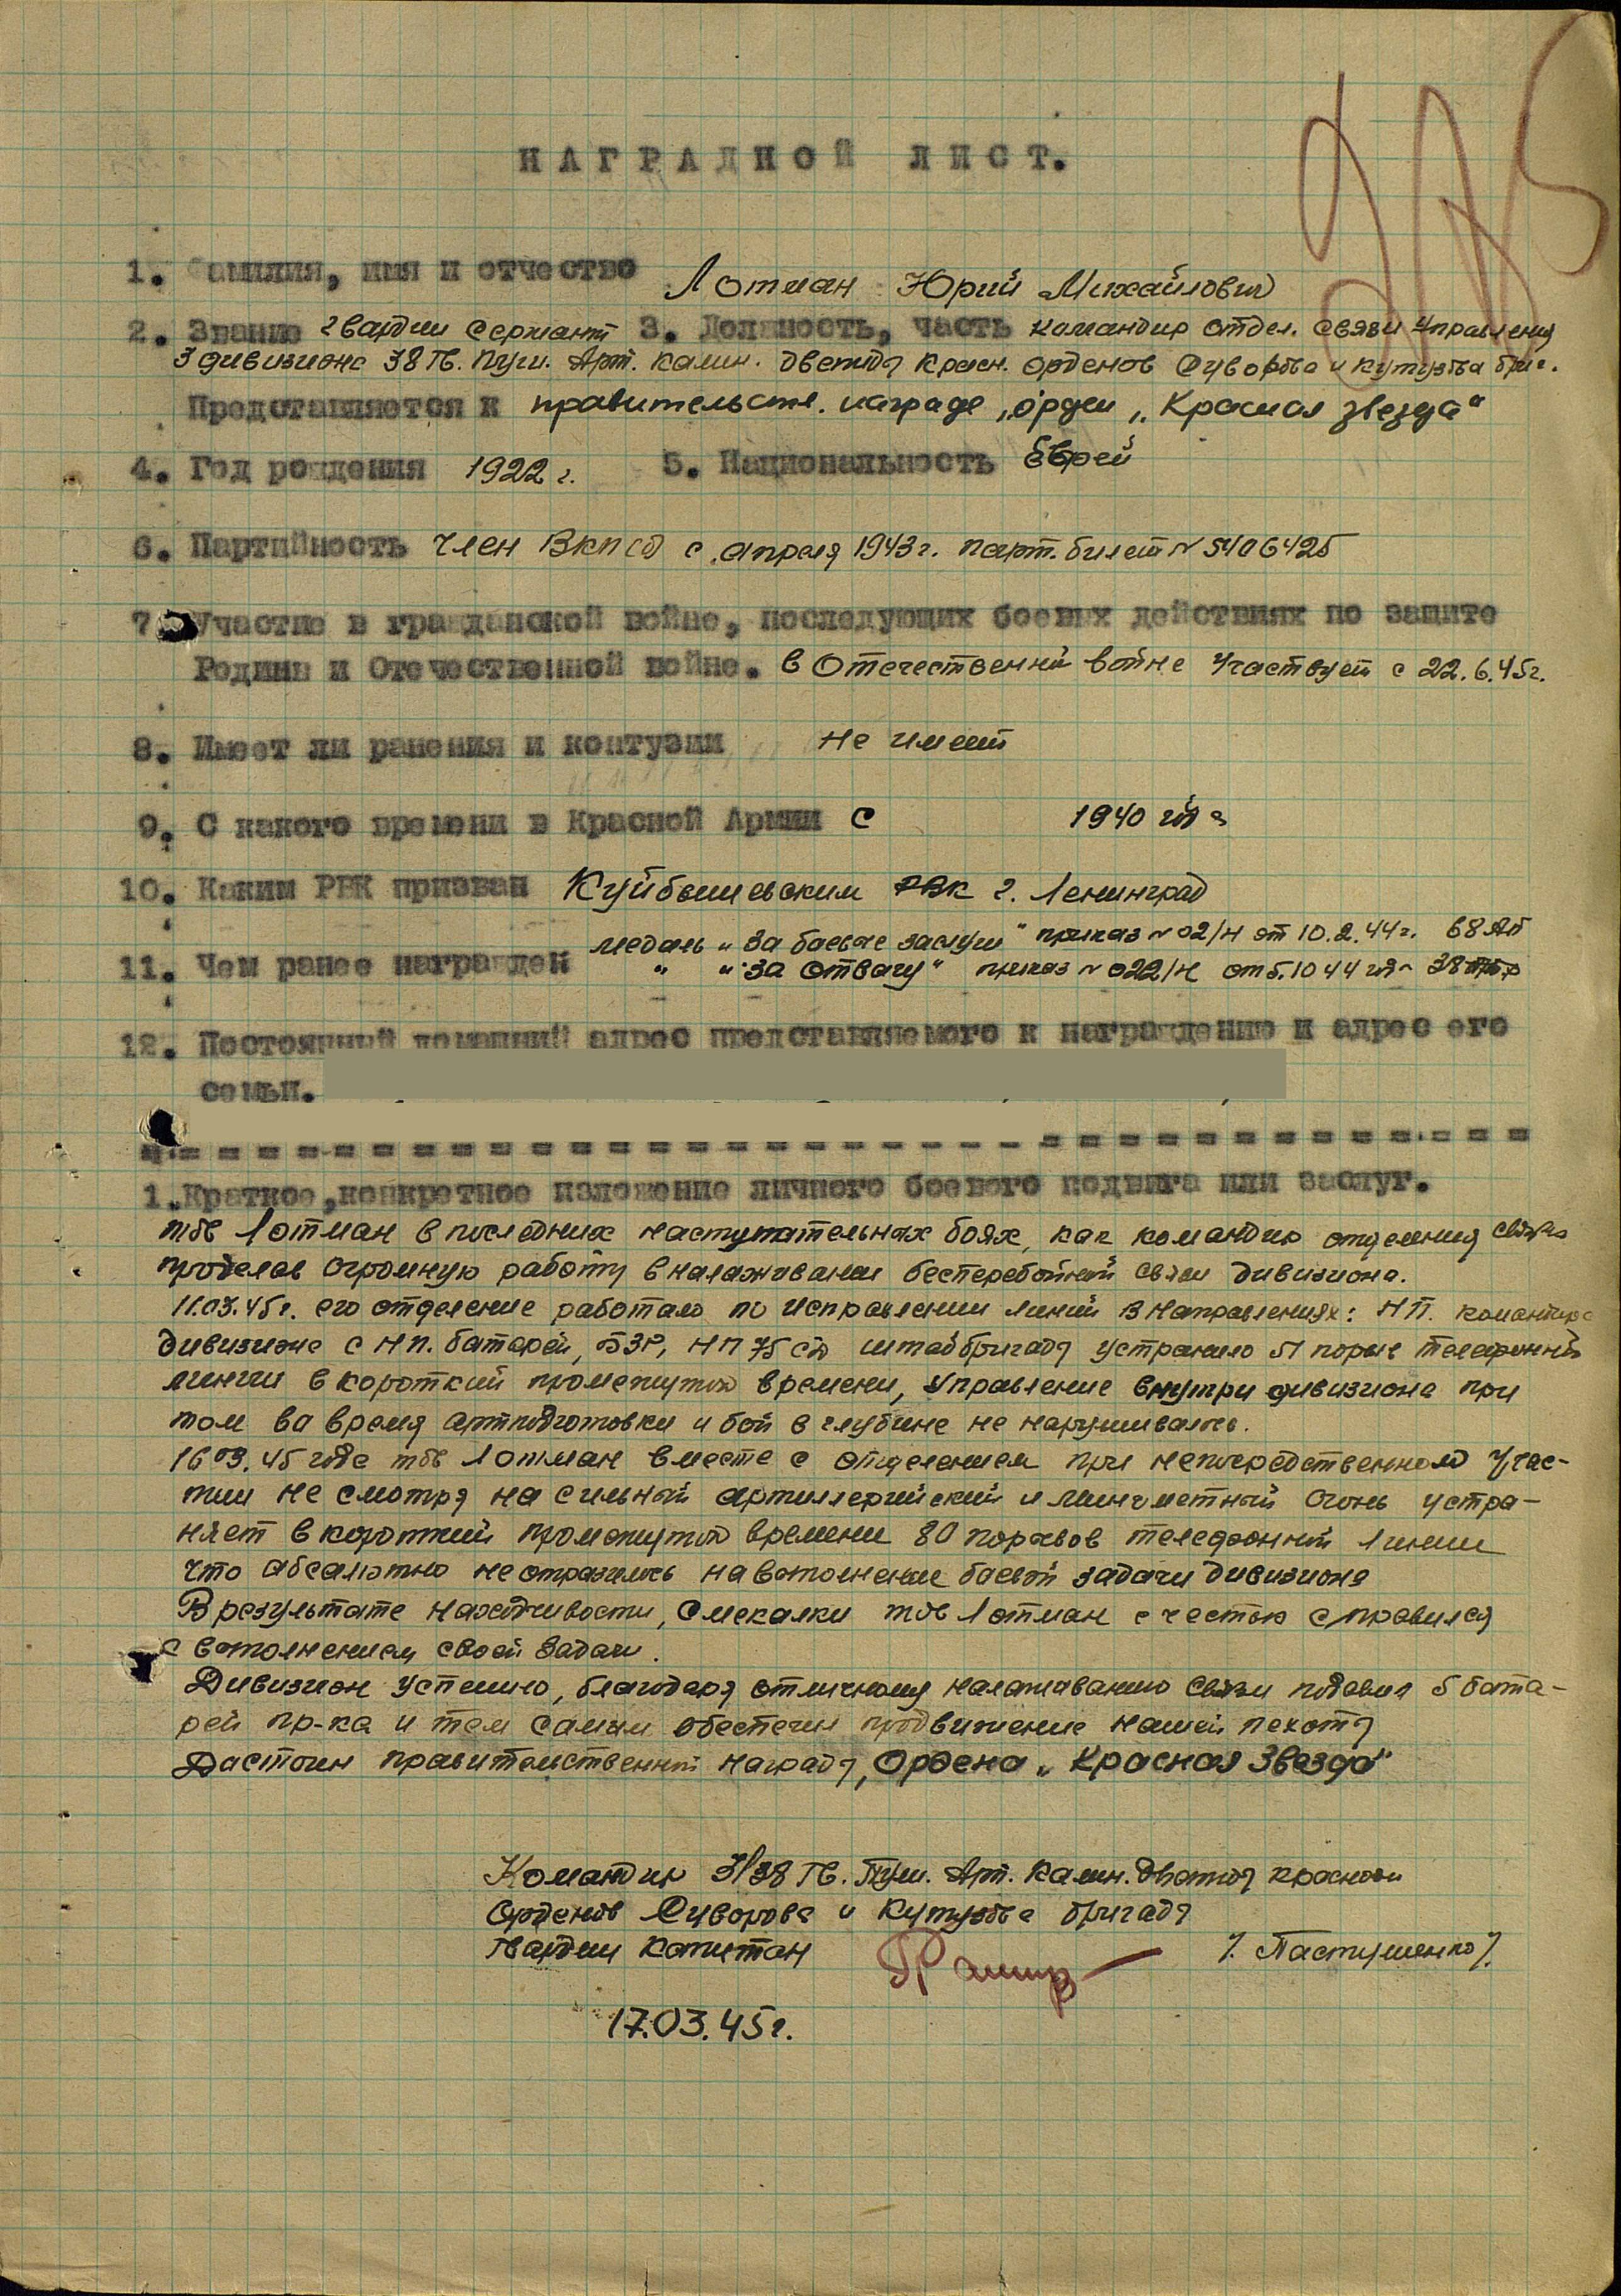 НАГРАДНОЙ ЛИСТ.
1. Фамилия, имя и отчество Лотман Юрий Михайлович
2. Звание гвардии сержант 3. Должность, часть командир отдел. связи управления
3 дивизиона 38 Гв. Пуш. Арт. Калин. дважды Красн. орденов Суворова и Кутузова бриг.
Представляется к правительств. награде „орден „Красная звезда“
4. Год рождения 1922 г. 5. Национальность еврей
6. Партийность член ВКП(б) с апреля 1943 г. парт. билет № 5406425
7. Участие в гражданской войне, последующих боевых действиях по защите
Родины и Отечественной войне. в Отечественной войне участвует с 22.6.45г.
8. Имеет ли ранения и контузии не имеет
9. С какого времени в Красной Армии с 1940 года
10. Каким РВК призван Куйбышевским РВК г. Ленинград
медаль „За боевые заслуги“ приказ № 02/н от 10.2.44 г. 68 АБ
11. Чем ранее награжден " „За отвагу“ приказ № 022/н от 5.10 44 года 38
12. Постоянный домашний адрес представляемого к награждению и адрес его
семьи.
1. Краткое, конкретное изложение личного боевого подвига или заслуг.
тов Лотман в последних наступательных боях, как командир отделения связи
проделав огромную работу в налаживании бесперебойной связи дивизиона.
11.03.45г. его отделение работало по исправлении линий в направлениях: НП. командира
дивизиона с НП. батарей, БЗР, НП 75 СД штаб бригады устранило 51 порыв телефонной
линии в короткий промежуток времени, управление внутри дивизиона при
том ва время артподготовки и бой в глубине не нарушивалось.
16 03.45 года тов Лотман вместе с отделением при непосредственном учас-
тии не смотря на сильный артиллерийский и минометный огонь устра-
няет в короткий промежуток времени 80 порывов телефонной линии
что абсалютно не отразилось на выполнение боевой задачи дивизиона
В результате находчивости, смекалки тов Лотман с честью справился
с выполнением своей задачи.
Дивизион успешно, благодаря отличному налаживанию связи подавил 5 бата-
рей пр-ка и тем самым обеспечил продвижение нашей пехоты
Дастоин правительственной награды, Ордена „Красная Звезда“
Командир 3/38 Гв. Пуш. Арт. Калин. дважды красно
Орденов Суворова и Кутузова бригады
Гвардии капитан /. Пастушенко /.
17.03.45г.